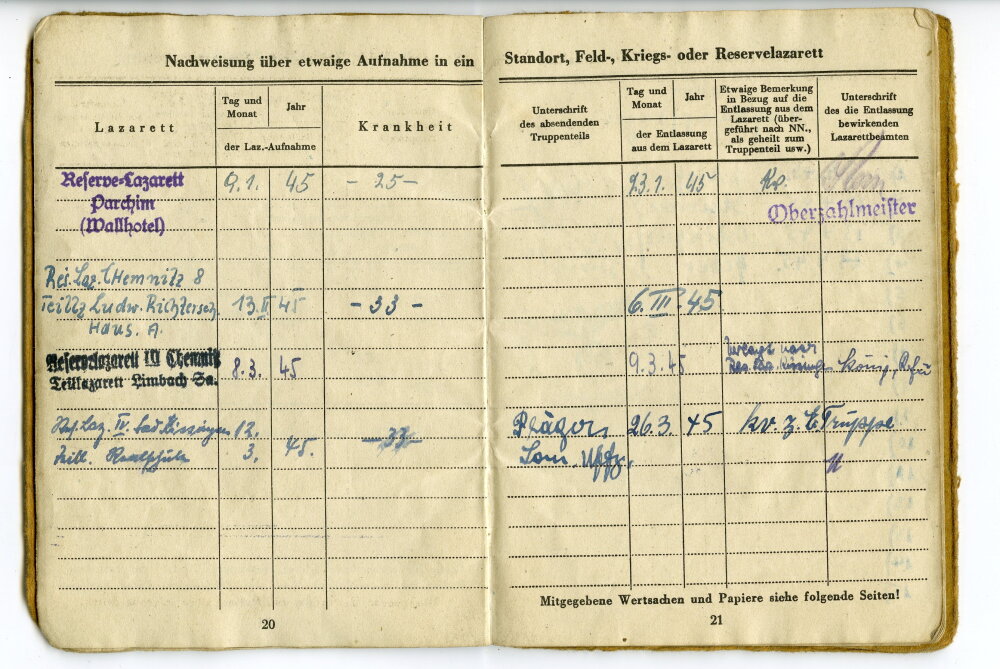 Nachweisung über etwaige Aufnahme in ein Standort, Feld-, Kriegs- oder Reservelazarett
Lazarett
Tag und Monat
Jahr
der Laz.-Aufnahme
Krankheit
Unterschrift
des absendenden
Truppenteils
Tag und Monat
Jahr
der Entlassung
aus dem Lazarett
Etwaige Bemerkung
in Bezug auf die
Entlassung aus dem
Lazarett (über-
geführt nach NN.,
als geheilt zum
Truppenteil usw.)
Unterschrift
des die Entlassung
bewirkenden
Lazarettbeamten
Reserve-Lazarett 9.1. 45 - 25 - 23.1. 45 Kv.
Parchim Oberzahlmeister
(Wallhotel)
Res. Laz. CHemnitz 8
Ludw. Richter 13.II 45 - 33 - 6. III. 45
Haus. A.
Reservelazarett III Chemnitz 8.3. 45 9.3.45
Teillazarett Limbach Sa. Res. Laz. König
Laz. IV. Bad Kissingen 12. 26.3. 45 kv z. Truppe
Realschule 3. 45. - 33 - Uffz.
Mitgegebene Wertsachen und Papiere siehe folgende Seiten!
20
21